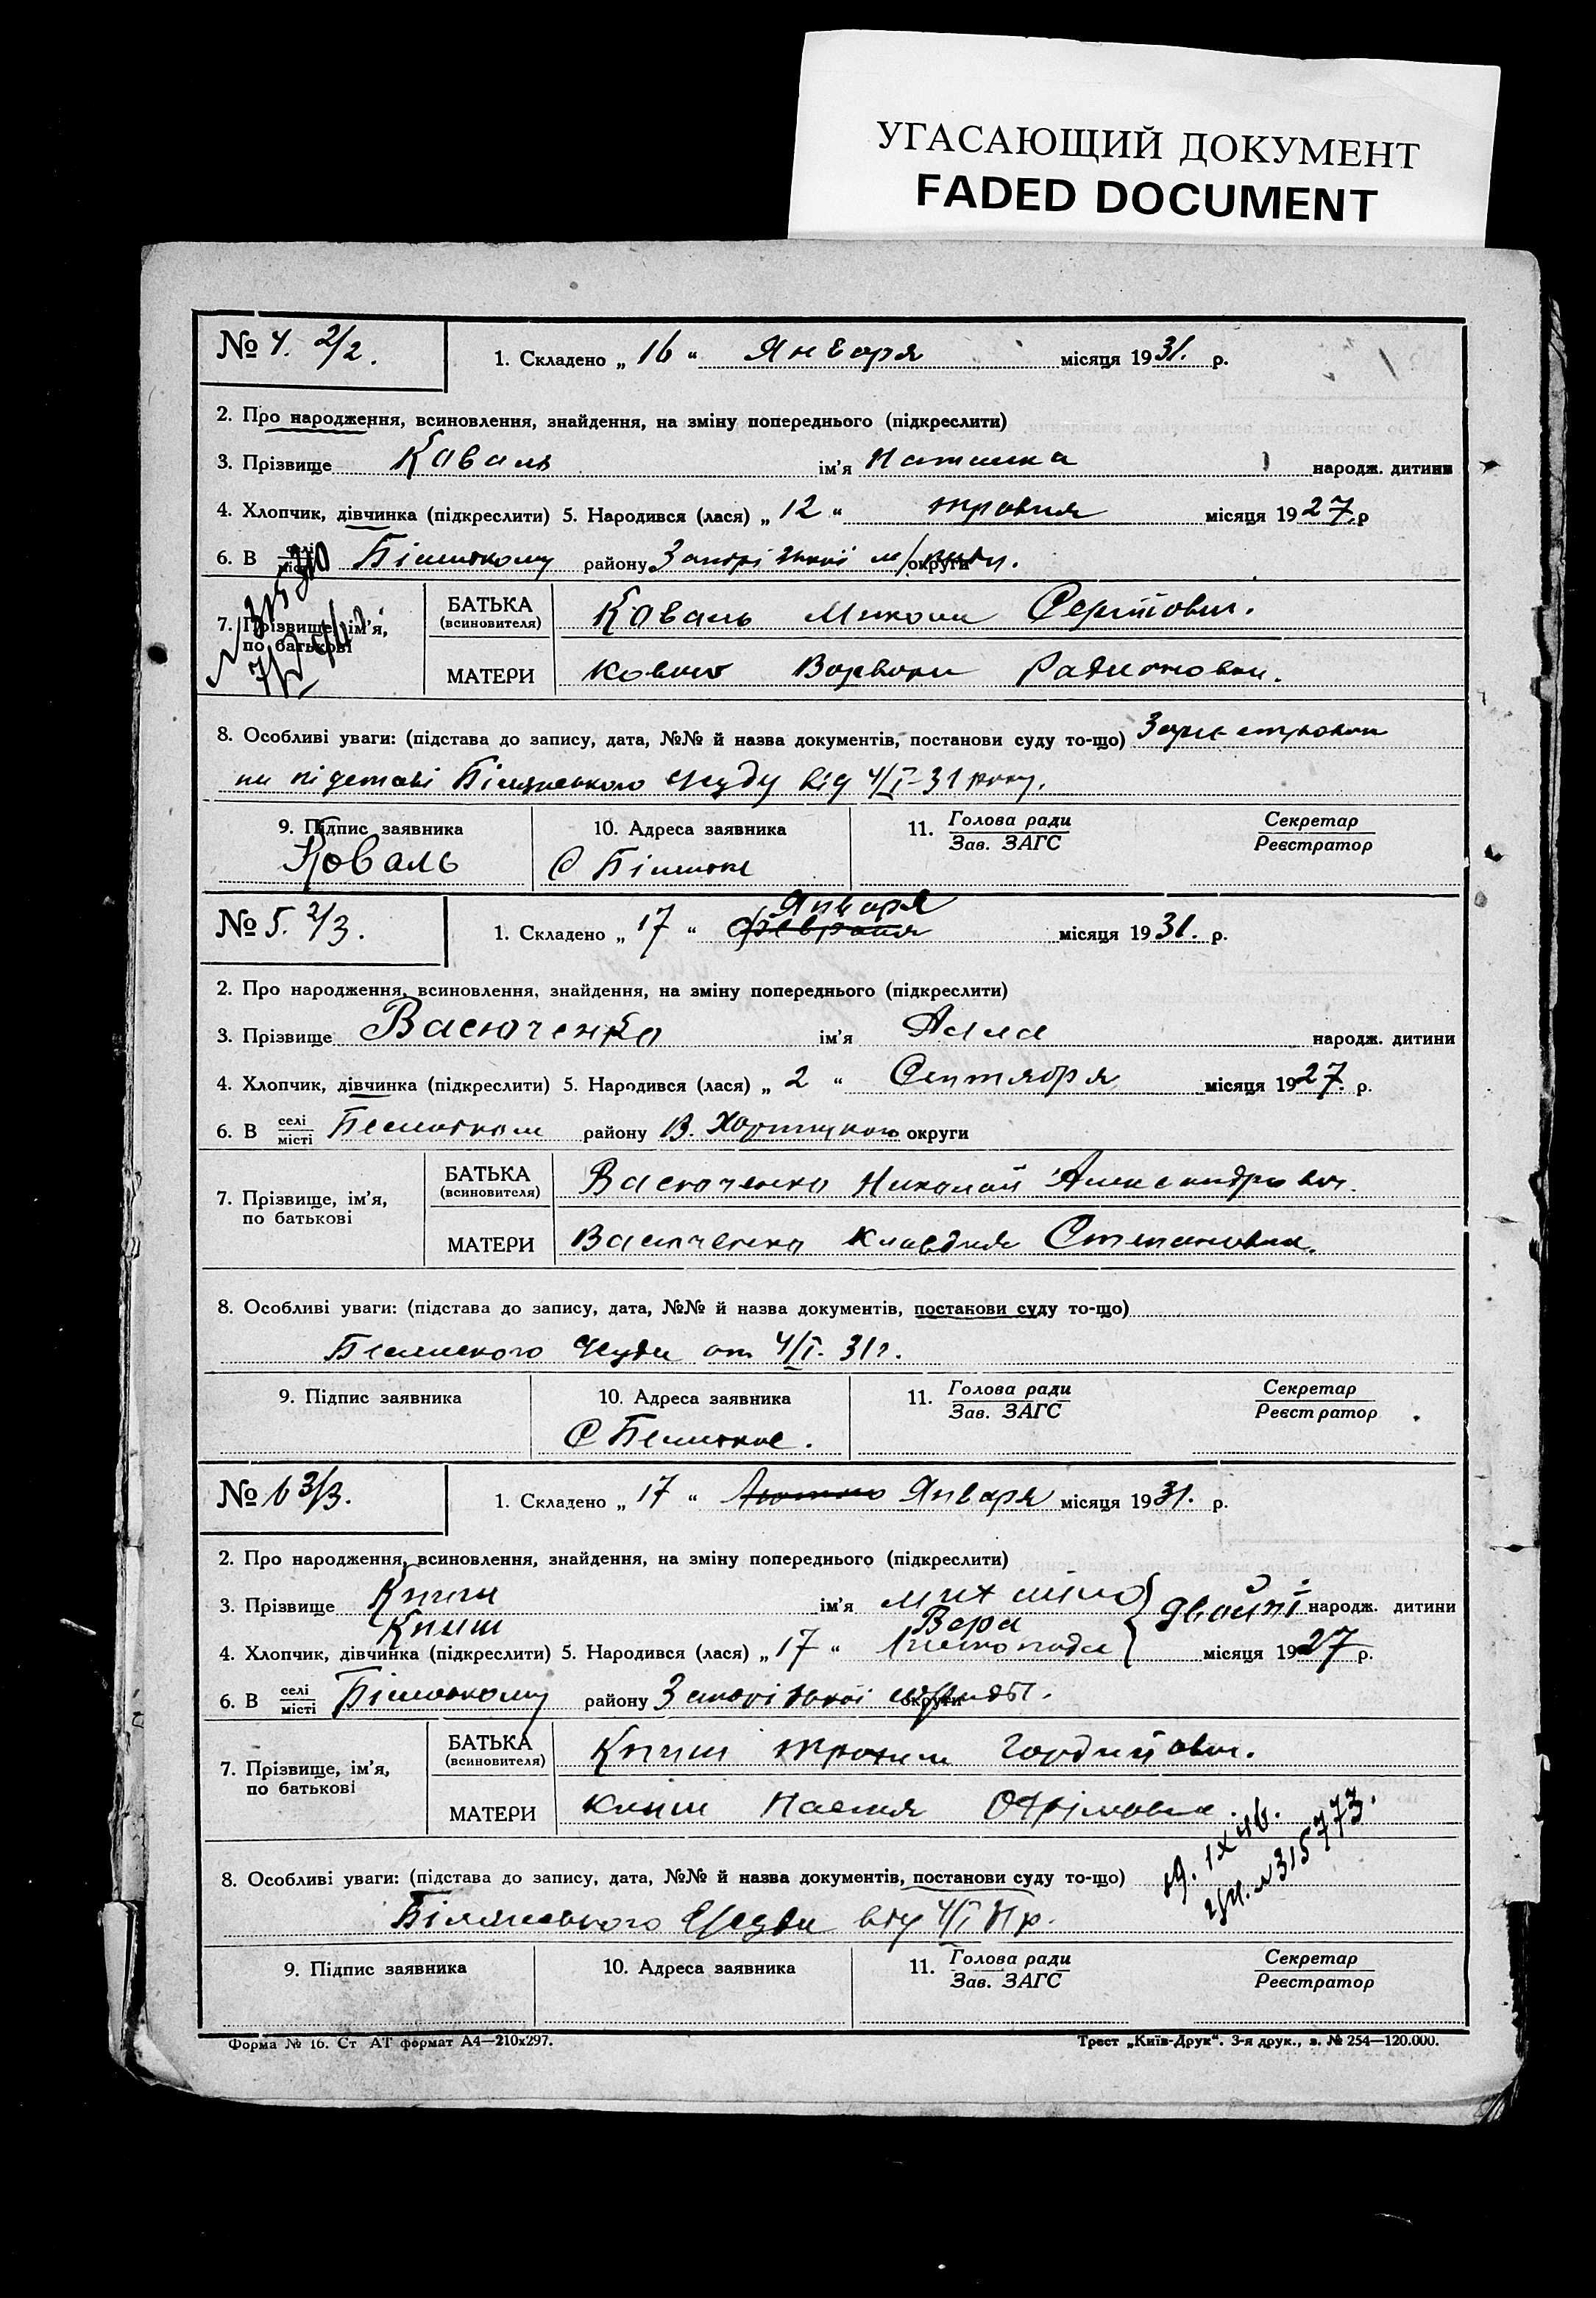 УГАСАЮЩИЙ ДОКУМЕНТ
FADED DOCUMENT
№ 4. 2/2.
1. Складено „ 16 “ Января місяця 1931. р.
2. Про народження, всиновлення, знайдення, на зміну попереднього (підкреслити)
3. Прізвище Коваль ім’я Наташка народж. дитини
4. Хлопчик, дівчинка (підкреслити) 5. Народився (лася) „ 12 “ травня місяця 1927. р
6. В селі місті району округи
7. Прізвище, ім’я, по батькові
БАТЬКА (всиновителя) Коваль Микола
МАТЕРИ Варвара Радионовна.
8. Особливі уваги: (підстава до запису, дата, №№ й назва документів, постанови суду то-що)
на підставі від 4/I-31 року.
9. Підпис заявника 10. Адреса заявника 11. Голова ради Зав. ЗАГС Секретар Реєстратор
Коваль С
№ 5. 2/3.
1. Складено „ 17 “ Февраля Января місяця 1931. р.
2. Про народження, всиновлення, знайдення, на зміну попереднього (підкреслити)
3. Прізвище Васюченко ім’я Алла народж. дитини
4. Хлопчик, дівчинка (підкреслити) 5. Народився (лася) „ 2 “ Сентября місяця 1927. р.
6. В селі місті району В. Хортицкого округи
7. Прізвище, ім’я, по батькові
БАТЬКА (всиновителя) Васюченко Николай Александрович.
МАТЕРИ Васюченко Клавдия Степановна.
8. Особливі уваги: (підстава до запису, дата, №№ й назва документів, постанови суду то-що)
от 4/I. 31г.
9. Підпис заявника 10. Адреса заявника 11. Голова ради Зав. ЗАГС Секретар Реєстратор
С
№ 6 3/3.
1. Складено „ 17 “ Лютого Января місяця 1931. р.
2. Про народження, всиновлення, знайдення, на зміну попереднього (підкреслити)
3. Прізвище Книш ім’я двойні народж. дитини
Книш Вера
4. Хлопчик, дівчинка (підкреслити) 5. Народився (лася) „ 17 “ Листопада місяця 1927 р.
6. В селі місті району округи
7. Прізвище, ім’я, по батькові
БАТЬКА (всиновителя) Книш Трохим Гордийович.
МАТЕРИ Книш Настя
19. IX 46.
№ 315773.
8. Особливі уваги: (підстава до запису, дата, №№ й назва документів, постанови суду то-що)
від 4/I 31 р.
9. Підпис заявника 10. Адреса заявника 11. Голова ради Зав. ЗАГС Секретар Реєстратор
Форма № 16. Ст АТ формат А4—210х297.
Трест „Київ-Друк“. 3-я друк., з. № 254—120.000.